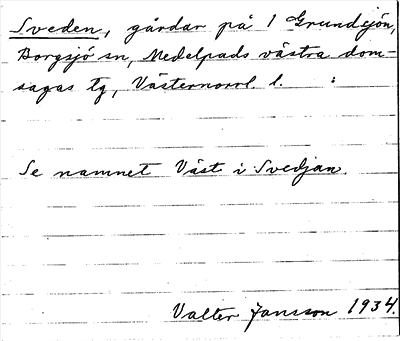 Sveden, gårdar på 1 Grundsjön,
Borgsjö sn, Medelpads västra dom-
sagas tg, Västernorrl. l. :
Se namnet Väst i Svedjan.
Valter Jansson 1934.